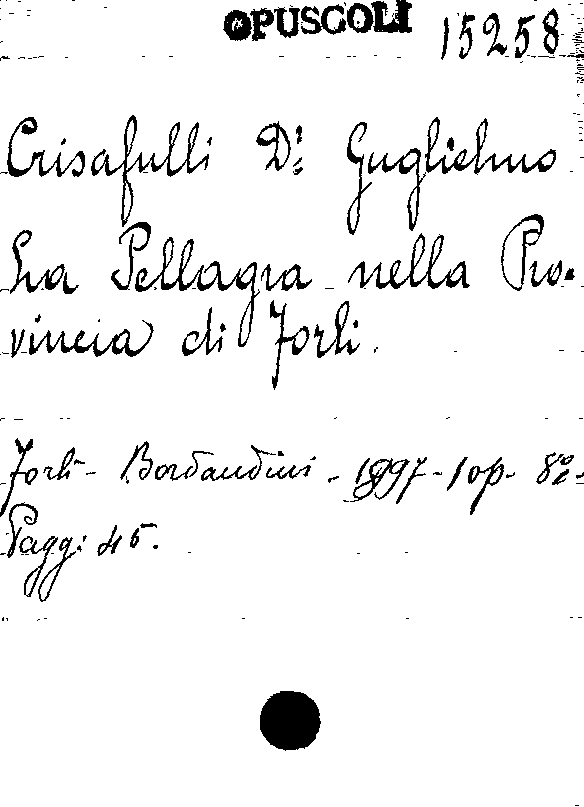 OPUSCOLI 15258
Crisafulli Dr: Guglielmo
La Pellagra nella Pro-
vincia di Forlì.
Forlì - Bordandini - 1897 - 1 op. 8º -
Pagg: 45.